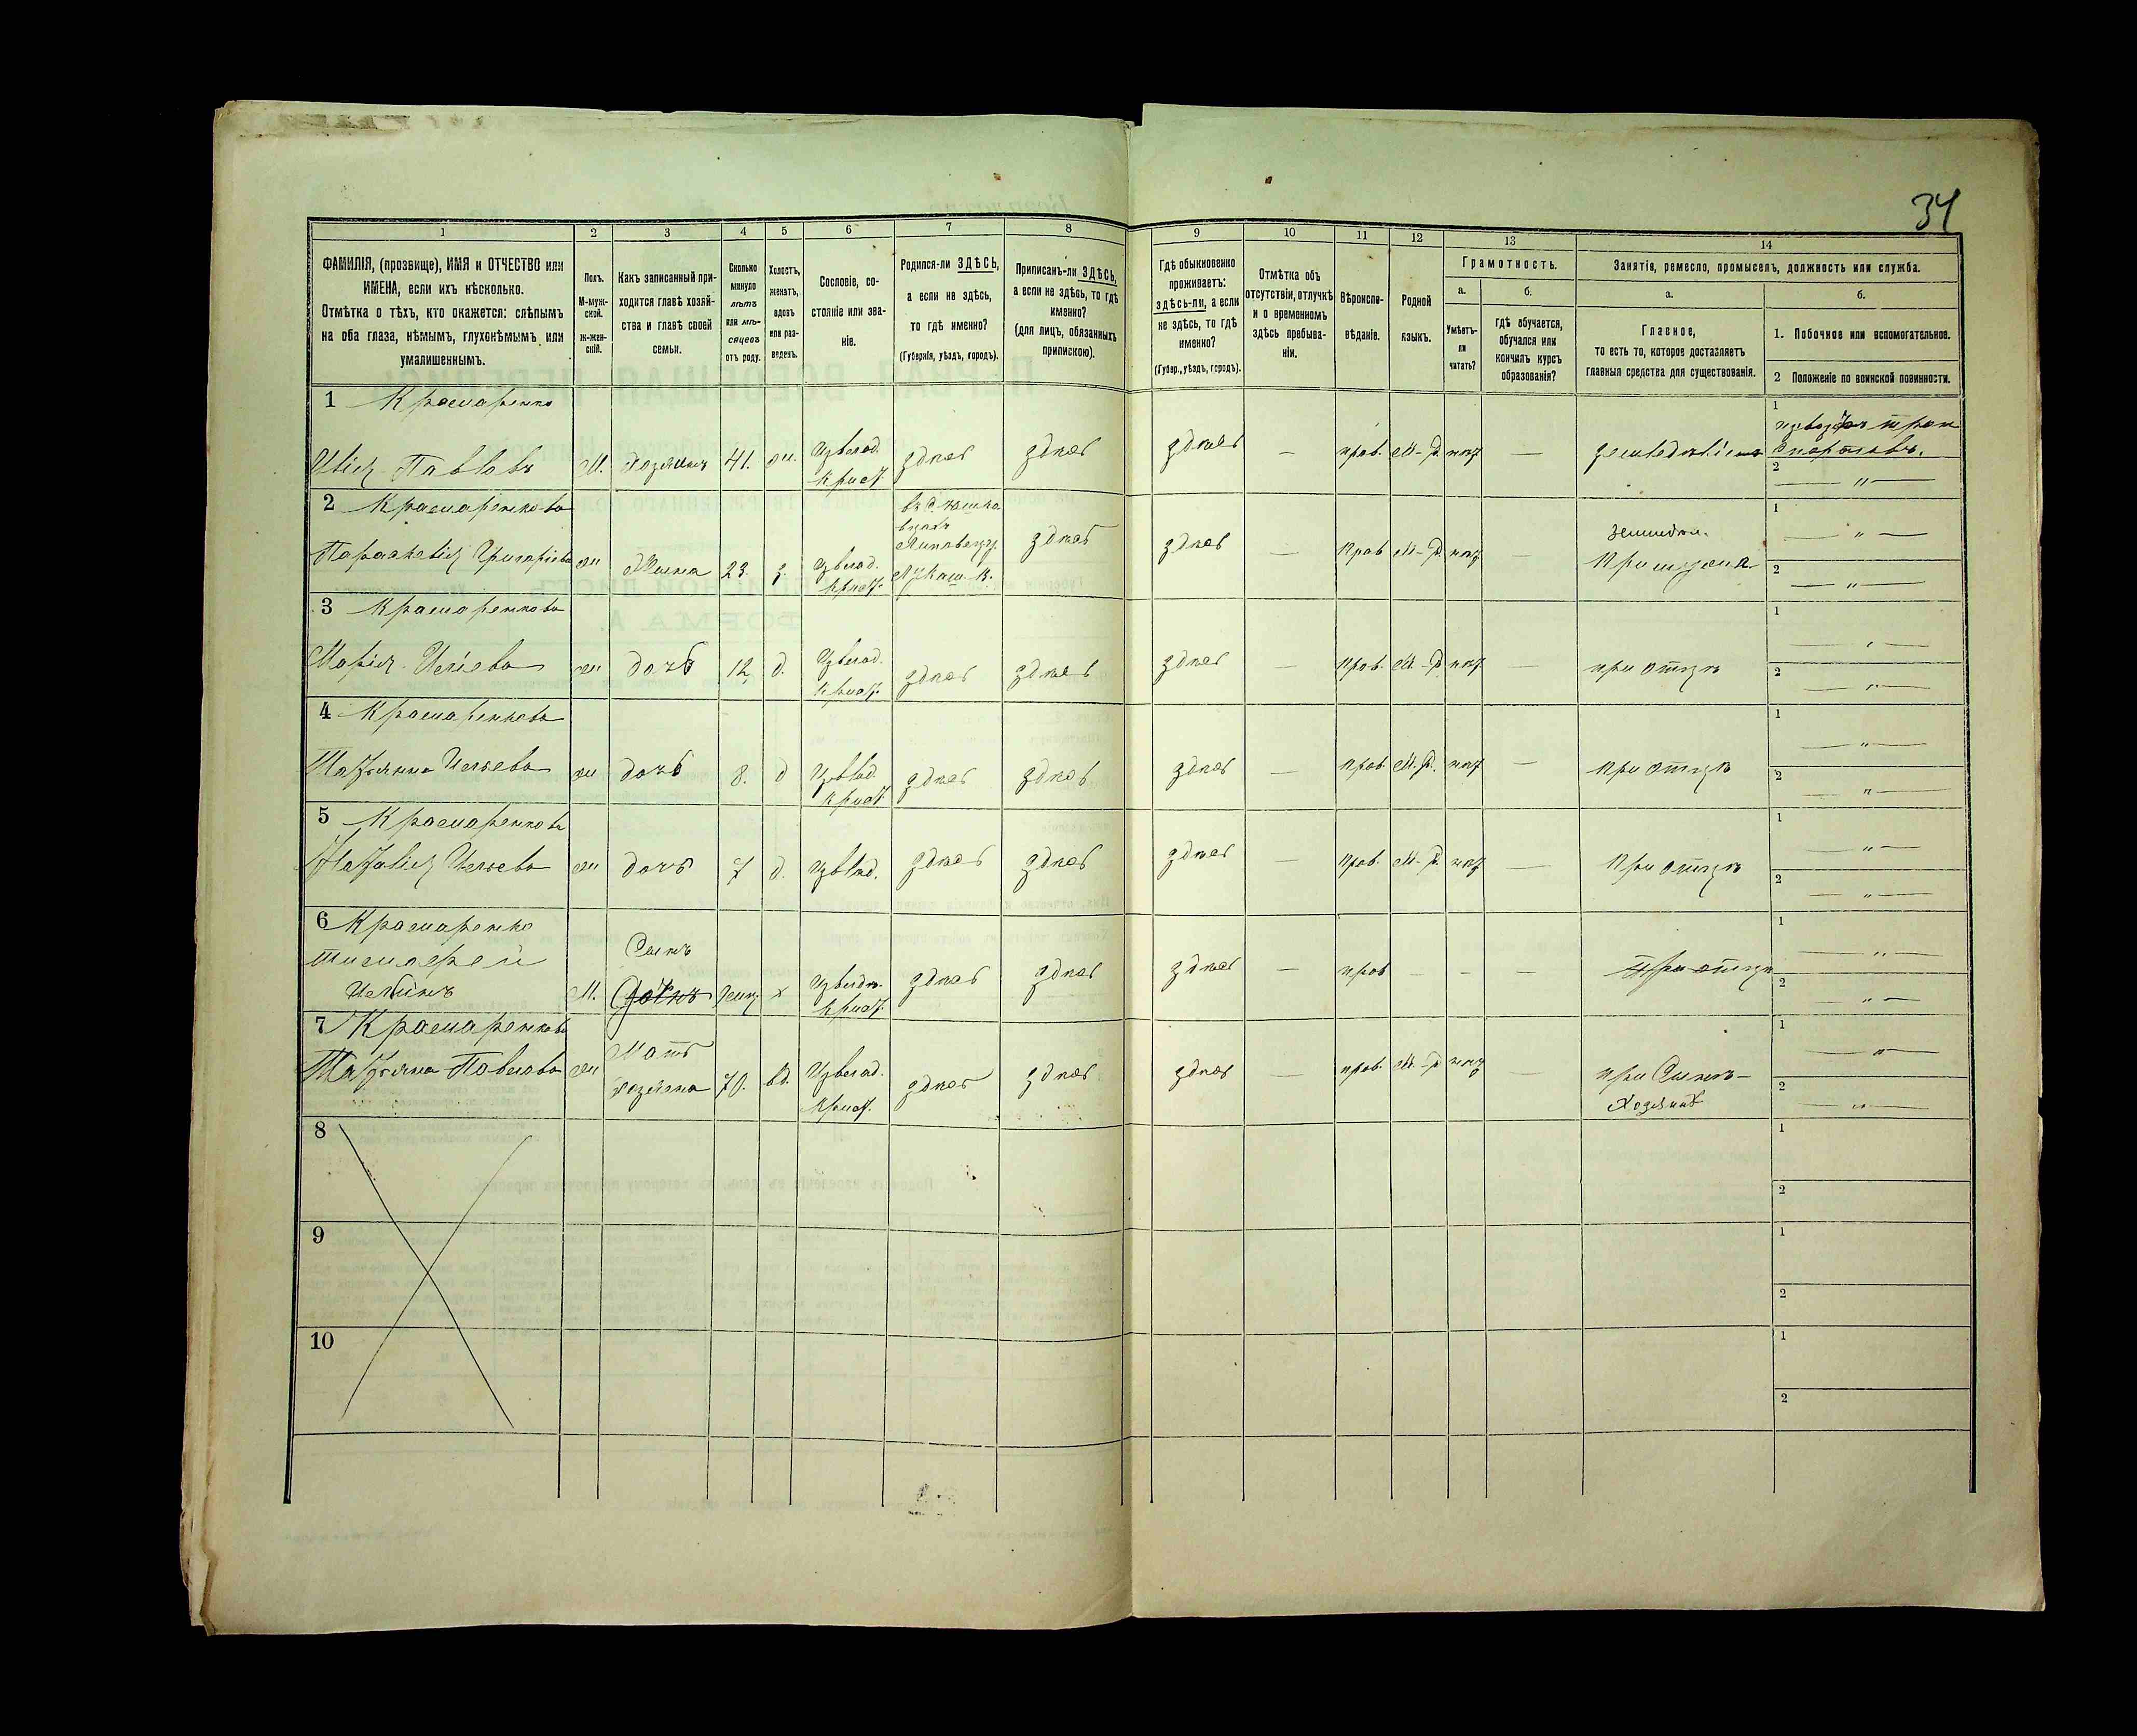 34
1 2 3 4 5 6 7 8 9 10 11 12 13 14
ФАМИЛІЯ, (прозвище), ИМЯ и ОТЧЕСТВО или
ИМЕНА, если ихъ нѣсколько.
Отмѣтка о тѣхъ, кто окажется: слѣпымъ
на оба глаза, нѣмымъ, глухонѣмымъ или
умалишеннымъ.
Полъ.
М-муж-
ской.
ж-жен-
скій.
Какъ записанный при-
ходится главѣ хозяй-
ства и главѣ своей
семьи.
Сколько
минуло
лѣтъ
или мѣ-
сяцевъ
отъ роду.
Холостъ,
женатъ,
вдовъ
или раз-
веденъ.
Сословіе, со-
стояніе или зва-
ніе.
Родился-ли ЗДѢСЬ,
а если не здѣсь,
то гдѣ именно?
(Губернія, уѣздъ, городъ).
Приписанъ-ли ЗДѢСЬ,
а если не здѣсь, то гдѣ
именно?
(для лицъ, обязанныхъ
припискою).
Гдѣ обыкновенно
проживаетъ:
здѣсь-ли, а если
не здѣсь, то гдѣ
именно?
(Губер., уѣздъ, городъ).
Отмѣтка объ
отсутствіи, отлучкѣ
и о временномъ
здѣсь пребыва-
ніи.
Вѣроиспо-
вѣданіе.
Родной
языкъ.
Грамотность.
а.
Умѣетъ-
ли
читать?
б.
гдѣ обучается,
обучался или
кончилъ курсъ
образованія?
Занятіе, ремесло, промыселъ, должность или служба.
а.
Главное,
то есть то, которое доставляетъ
главныя средства для существованія.
б.
1. Побочное или вспомогательное.
2 Положеніе по воинской повинности.
1 Крамаренко
Павловъ М. Хозяинъ 41. здѣсь здѣсь здѣсь — прав. М-Р нѣт —
1
2 — " —
2 Крамаренкова
Параскевія Григорьева ж Жена 23. здѣсь здѣсь — прав М-Р нѣт — При мужѣ
1 — " —
2 — " —
3 Крамаренкова
Марія Ильева ж дочь 12 д. здѣсь здѣсь здѣсь — прав. М-Р нѣт — при отцѣ
1 — " —
2 — " —
4 Крамаренкова
Татьяна Ильева ж дочь 8. д здѣсь здѣсь здѣсь — прав М.Р. нѣт — при отцѣ
1 — " —
2 — " —
5 Крамаренкова
Наталія Ильева ж дочь 7 д. здѣсь здѣсь здѣсь — прав. М-Р нѣт — при отцѣ
1 — " —
2 — " —
6 Крамаренко
Тимофей
Ильинъ М. Сынъ х здѣсь здѣсь здѣсь — прав — — — при отцѣ
1 — " —
2 — " —
7 Крамаренкова
Татьяна Павлова ж Мать хозяина 70. вд. здѣсь здѣсь здѣсь — прав. М-Р нѣт — при Сынѣ—
Хозяинѣ
1 — " —
2 — " —
8
1
2
9
1
2
10
1
2